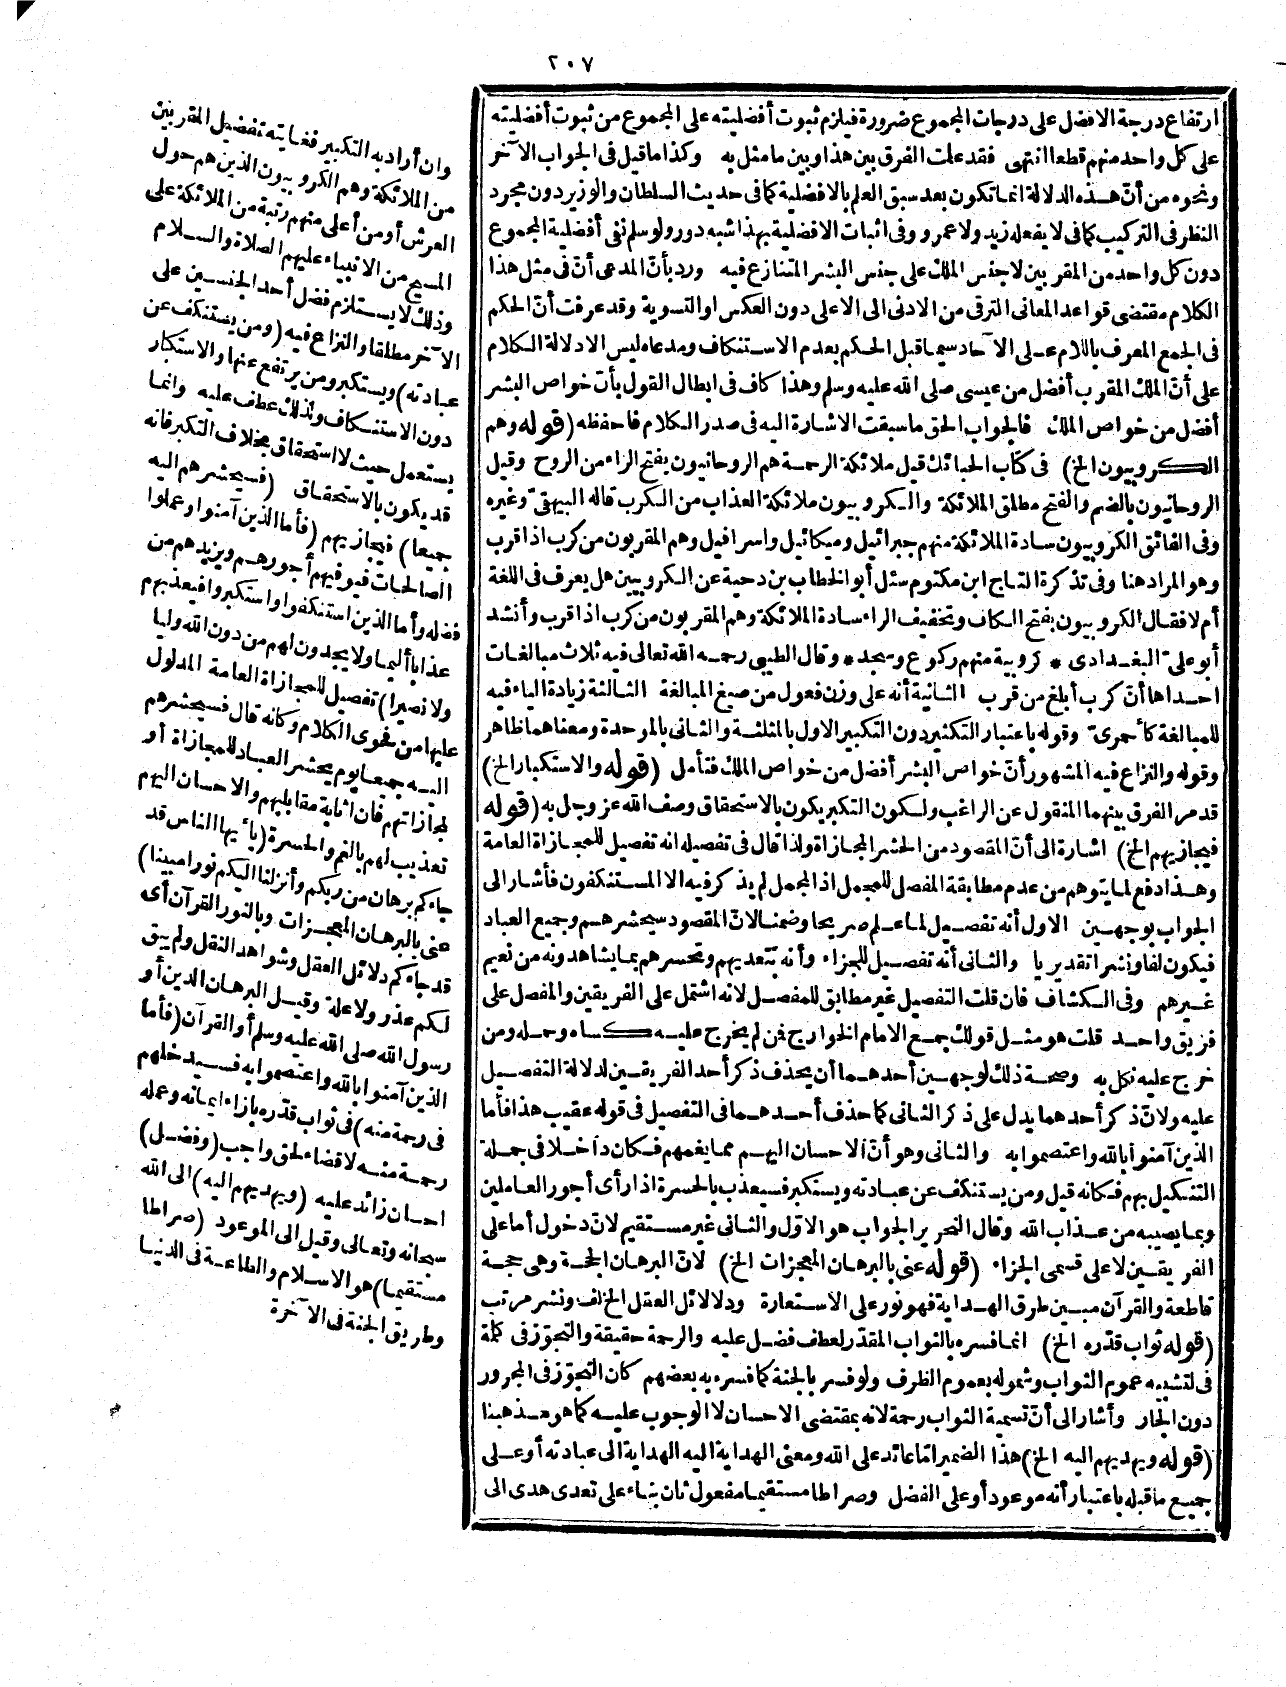 ٢٠٧
ارتفاع درجة الافضل على درجات المجموع ضرورة فيلزم ثبوت أفضليته على المجموع من ثبوت أفضليته
على كل واحد منهم قطعا انتهى فقد علمت الفرق بين هذا وبين ما مثل به وكذا ما قيل فى الجواب الآخر
ونحوه من أنّ هذه الدلالة انما تكون بعد سبق العلم بالافضلية كما فى حديث السلطان والوزير دون مجرد
النظر فى التركيب كما فى لا يفعله زيد ولا عمرو وفى اثبات الافضلية بهذا شبه دور ولو سلم نفى أفضلية المجموع
دون كل واحد من المقربين لا جنس الملك على جنس البشر المتنازع فيه ورد بأنّ المدعى أنّ فى مثل هذا
الكلام مقتضى قواعد المعانى الترقى من الادنى الى الاعلى دون العكس او التسوية وقد عرفت أنّ الحكم
فى الجمع المعرف باللام على الآحاد سيما قبل الحكم بعدم الاستنكاف ومدعاه ليس الا دلالة الكلام
على أنّ الملك المقرب أفضل من عيسى صلى الله عليه وسلم وهذا كاف فى ابطال القول بأنّ خواص البشر
أفضل من خواص الملك فالجواب الحق ما سبقت الاشارة اليه فى صدر الكلام فاحفظه (قوله وهم
الكروبيون الخ) فى كتاب الحبائك قيل ملائكة الرحمة هم الروحانيون بفتح الراء من الروح وقيل
الروحانيون بالضم والفتح مطلق الملائكة والكروبيون ملائكة العذاب من الكرب قاله البيهقى وغيره
وفى الفائق الكروبيون سادة الملائكة منهم جبرائيل وميكائيل واسرافيل وهم المقربون من كرب اذا قرب
وهو المراد هنا وفى تذكرة التاج ابن مكتوم سئل أبو الخطاب بن دحية عن الكروبيين هل يعرف فى اللغة
أم لا فقال الكروبيون بفتح الكاف وتخفيف الراء سادة الملائكة وهم المقربون من كرب اذا قرب وأنشد
أبو على البغدادى * كروبية منهم ركوع وسجد * وقال الطيبى رحمه الله تعالى فيه ثلاث مبالغات
احداها أنّ كرب أبلغ من قرب الثانية أنه على وزن فعول من صيغ المبالغة الثالثة زيادة الياء فيه
للمبالغة كأحمرىّ وقوله باعتبار التكثير دون التكبير الاول بالمثلثة والثانى بالموحدة ومعناهما ظاهر
وقوله والنزاع فيه المشهور أنّ خواص البشر أفضل من خواص الملك فتأمل (قوله والاستكبار الخ)
قد مر الفرق بينهما المنقول عن الراغب ولكون التكبر يكون بالاستحقاق وصف الله عز وجل به (قوله
فيجازيهم الخ) اشارة الى أنّ المقصود من الحشر المجازاة ولذا قال فى تفصيله انه تفصيل للمجازاة العامة
وهذا دفع لما يتوهم من عدم مطابقة المفصل للمجمل اذ المجمل لم يذكر فيه الا المستنكفون فأشار الى
الجواب بوجهين الاول أنه تفصيل لما علم صريحا وضمنا لانّ المقصود سيحشرهم وجميع العباد
فيكون لفا ونشرا تقديريا والثانى أنه تفصيل للجزاء وأنه بتعذيبهم وتحسرهم بما يشاهدونه من نعيم
غيرهم وفى الكشاف فان قلت التفصيل غير مطابق للمفصل لانه اشتمل على الفريقين والمفصل على
فريق واحد قلت هو مثل قولك جمع الامام الخوارج فمن لم يخرج عليه كساه وحمله ومن
خرج عليه نكل به وصحة ذلك لوجهين أحدهما أن يحذف ذكر أحد الفريقين لدلالة التفصيل
عليه ولانّ ذكر أحدهما يدل على ذكر الثانى كما حذف أحدهما فى التفصيل فى قوله عقيب هذا فأما
الذين آمنوا بالله واعتصموا به والثانى وهو أنّ الاحسان اليهم مما يغمهم فكان داخلا فى جملة
التنكيل بهم فكانه قيل ومن يستنكف عن عبادته ويستكبر فسيعذب بالحسرة اذا رأى أجور العاملين
وبما يصيبه من عذاب الله وقال النحرير الجواب هو الاوّل والثانى غير مستقيم لانّ دخول أما على
الفريقين لا على قسمى الجزاء (قوله عنى بالبرهان المعجزات الخ) لانّ البرهان الحجة وهى حجة
قاطعة والقرآن مبين طرق الهداية فهو نور على الاستعارة ودلائل العقل الخ لف ونشر مرتب
(قوله ثواب قدّره الخ) انما فسره بالثواب المقدّر لعطف فضل عليه والرحمة حقيقة والتجوّز فى كلمة
فى لتشبيه عموم الثواب وشموله بعموم الظرف ولو فسر بالجنة كما فسره به بعضهم كان التجوّز فى المجرور
دون الجار وأشار الى أنّ تسمية الثواب رحمة لانه بمقتضى الاحسان لا الوجوب عليه كما هو مذهبنا
(قوله ويهديهم اليه الخ) هذا الضمير امّا عائد على الله ومعنى الهداية اليه الهداية الى عبادته أو على
جميع ما قبله باعتبار أنه موعود أو على الفضل وصراطا مستقيما مفعول ثان بناء على تعدى هدى الى
وان أراد به التكبير فغايته تفضيل المقربين
من الملائكة وهم الكروبيون الذين هم حول
العرش أو من أعلى منهم رتبة من الملائكة على
المسيح من الانبياء عليهم الصلاة والسلام
وذلك لا يستلزم فضل أحد الجنسين على
الآخر مطلقا والنزاع فيه (ومن يستنكف عن
عبادته) ويستكبر ومن يرتفع عنها والاستكبار
دون الاستنكاف ولذلك عطف عليه وانما
يستعمل حيث لا استحقاق بخلاف التكبر فانه
قد يكون بالاستحقاق (فسيحشرهم اليه
جميعا) فيجازيهم (فأما الذين آمنوا وعملوا
الصالحات فيوفيهم أجورهم ويزيدهم من
فضله وأما الذين استنكفوا واستكبروا فيعذبهم
عذابا أليما ولا يجدون لهم من دون الله وليا
ولا نصيرا) تفصيل للمجازاة العامة المدلول
عليها من فحوى الكلام وكانه قال فسيحشرهم
اليه جميعا يوم يحشر العباد للمجازاة أو
لمجازاتهم فان اثابة مقابليهم والاحسان اليهم
تعذيب لهم بالغم والحسرة (يا أيها الناس قد
جاءكم برهان من ربكم وأنزلنا اليكم نورا مبينا)
عنى بالبرهان المعجزات وبالنور القرآن أى
قد جاءكم دلائل العقل وشواهد النقل ولم يبق
لكم عذر ولا علة وقيل البرهان الدين أو
رسول الله صلى الله عليه وسلم أو القرآن (فأما
الذين آمنوا بالله واعتصموا به فسيدخلهم
فى رحمة منه) فى ثواب قدّره بازاء ايمانه وعمله
رحمة منه لا قضاء لحق واجب (وفضل)
احسان زائد عليه (ويهديهم اليه) الى الله
سبحانه وتعالى وقيل الى الموعود (صراطا
مستقيما) هو الاسلام والطاعة فى الدنيا
وطريق الجنة فى الآخرة